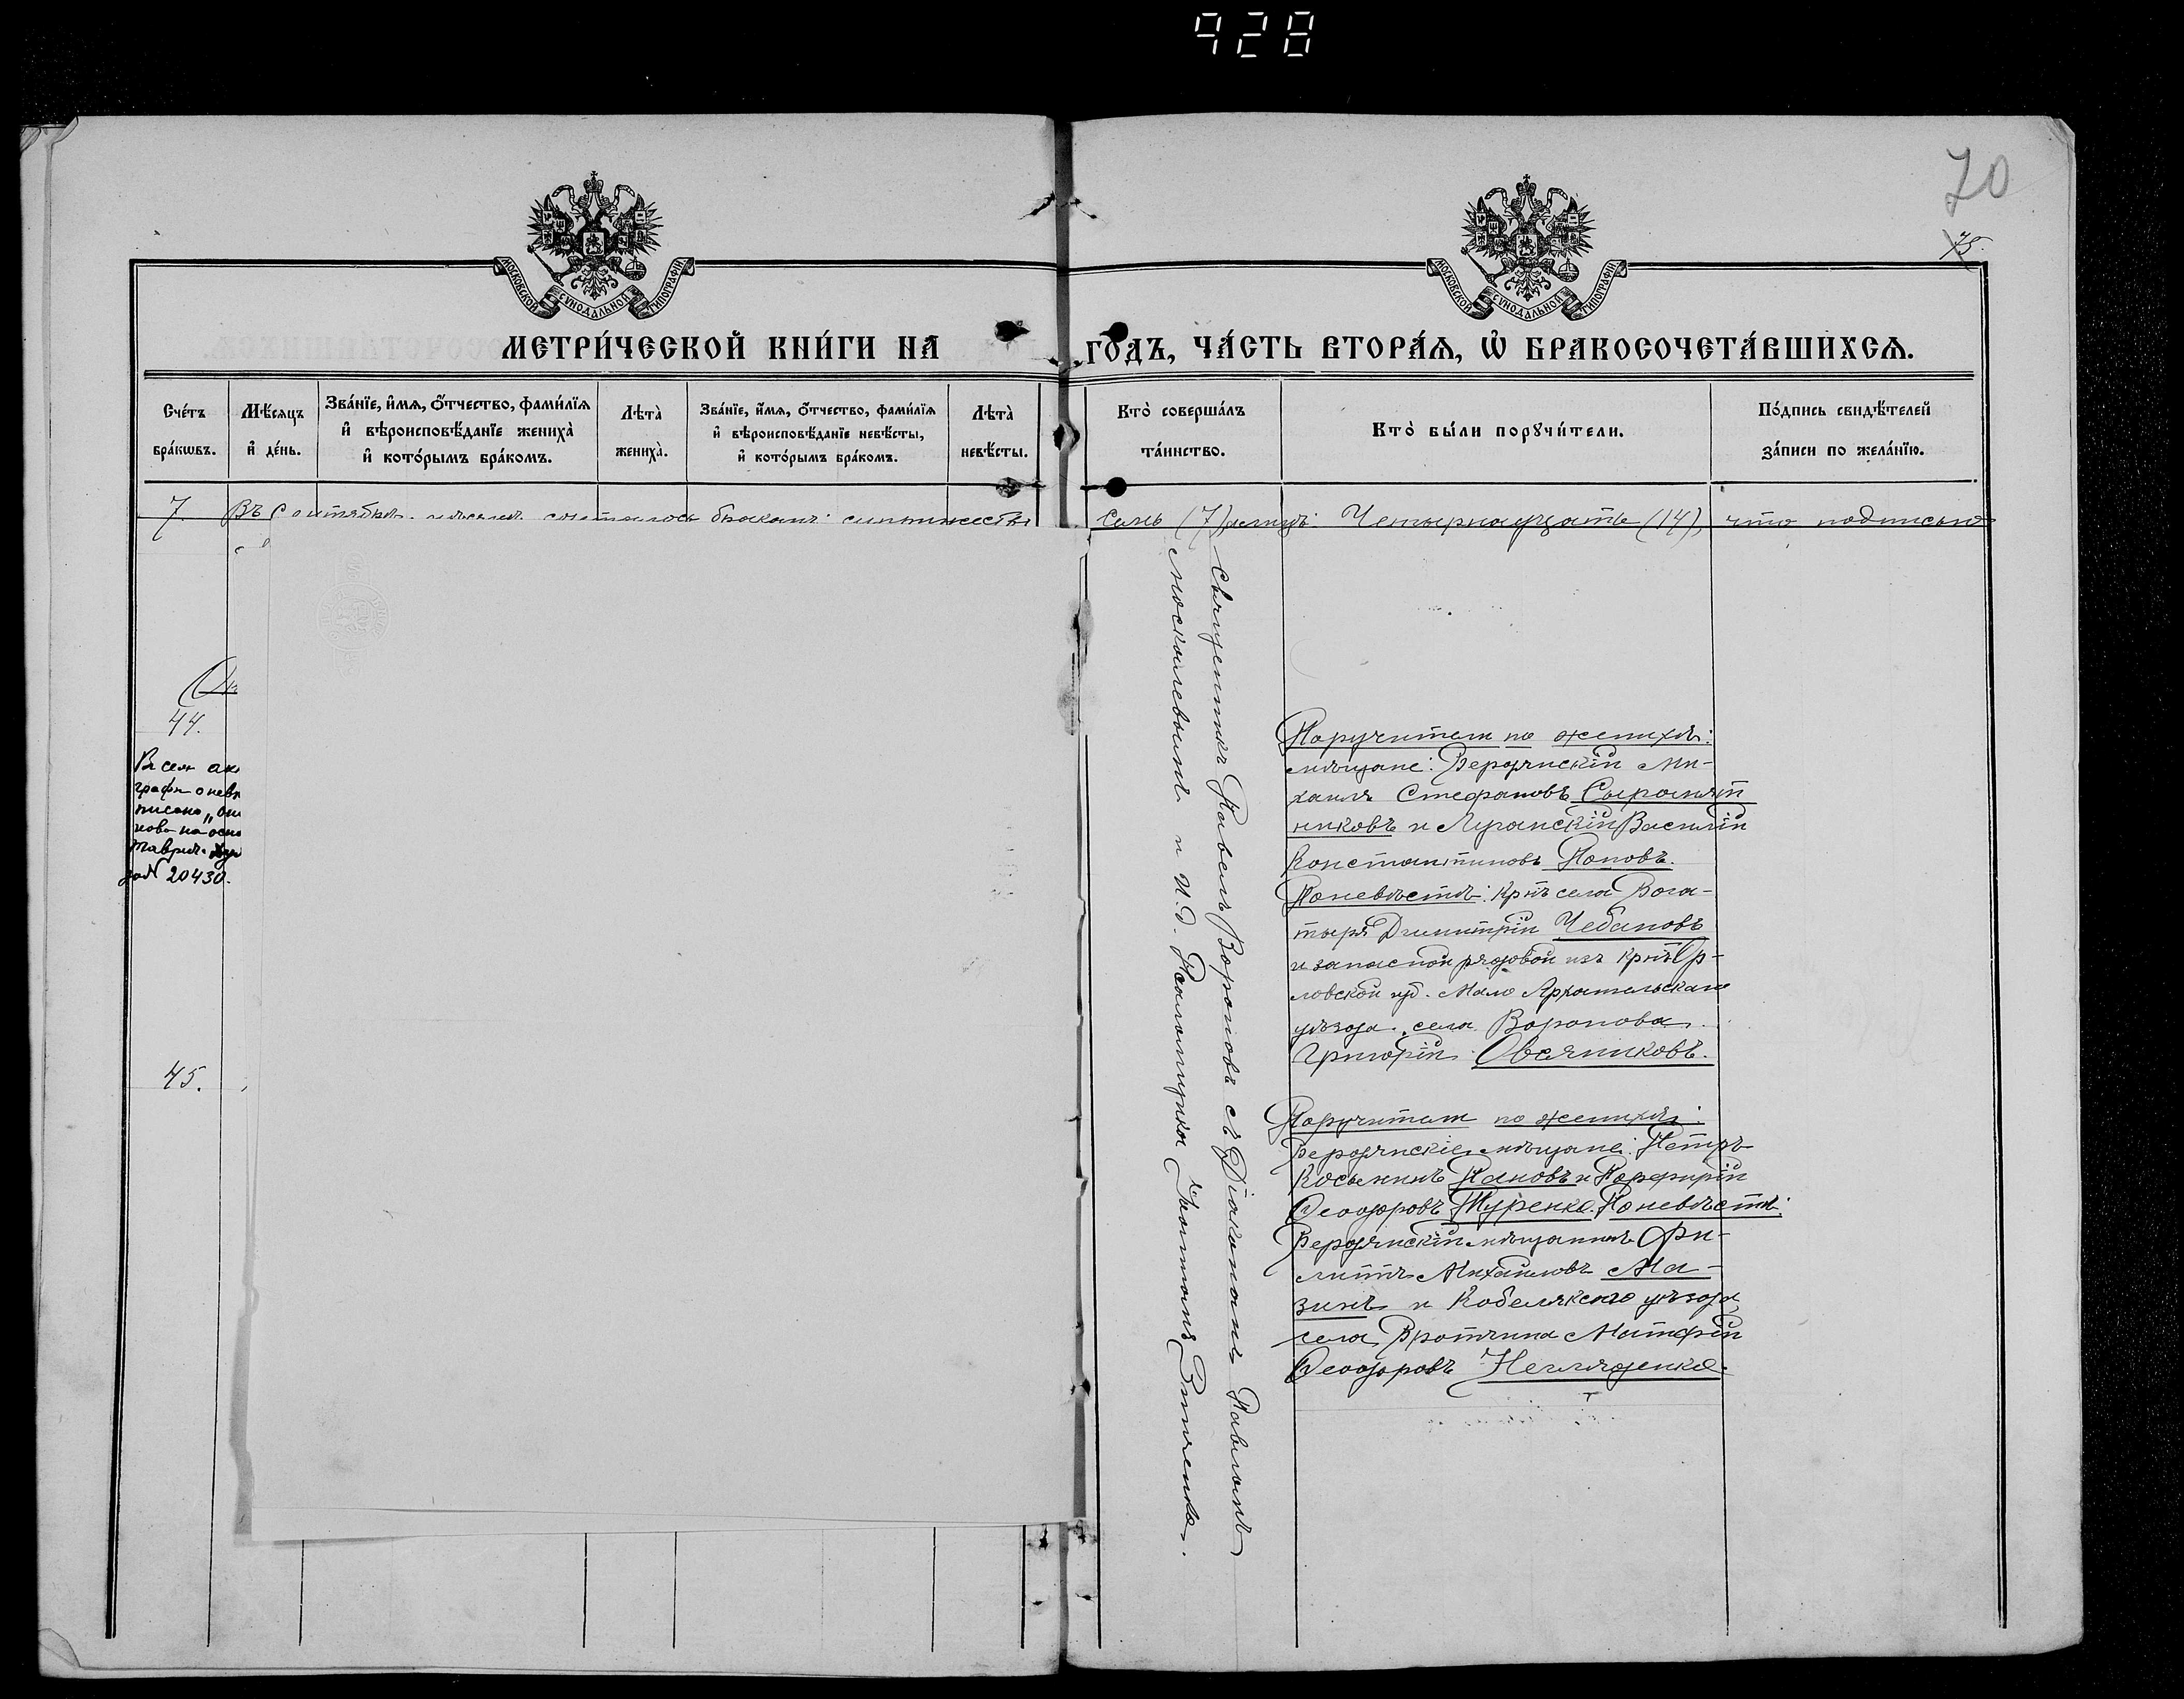 928
70
75.
МОСКОВСКОЙ СѴНОДАЛЬНОЙ ТИПОГРАФІИ
МОСКОВСКОЙ СѴНОДАЛЬНОЙ ТИПОГРАФІИ
МЕТРИ́ЧЕСКОЙ КНИ́ГИ НА ГОДЪ, ЧА́СТЬ ВТОРА́Ѧ, Ѡ БРАКОСОЧЕТА́ВШИХСѦ.
Сче́тъ бра́кѡвъ.
Мѣ́сѧцъ и҆ де́нь.
Зва́нїе, и҆́мѧ, ѻ҆́тчество, фами́лїѧ и҆ вѣроисповѣ́данїе жениха̀ и҆ кото́рымъ бра́комъ.
Лѣта̀ жениха̀.
Зва́нїе, и҆́мѧ, ѻ҆́тчество, фами́лїѧ и҆ вѣроисповѣ́данїе невѣ́сты, и҆ кото́рымъ бра́комъ.
Лѣта̀ невѣ́сты.
Кто̀ соверша́лъ та́инство.
Кто̀ бы́ли порꙋчи́тели.
По́дпись свидѣ́телей за́писи по жела́нїю.
7. Въ Сентябрѣ мѣсяцѣ состоялось браковъ
Семь (7), лицъ Четырнадцать (14), что подписью
44.
Въ сем ак
графѣ о невѣ
писано „
ново на осно
Таврич.
за № 20430.
45.
Священникъ Павелъ Вороновъ съ Діакономъ Павломъ
Москалевымъ и И. д. Псаломщика Зинченко.
Поручители по женихѣ:
мѣщане: Бердянскій Ми-
хаилъ Стефановъ Сыромят
никовъ и Луганскій Василій
Константиновъ Поповъ.
По невѣстѣ: крнъ села Бога-
тыря Димитрій Чебановъ
и запасной рядовой изъ крнъ Ор-
ловской губ. Мало Архангельскаго
уѣзда села Воронова
Григорій Овсяниковъ.
Поручители по женихѣ:
Бердянскіе мѣщане: Петръ
Косьминъ Пановъ и Порфирій
Ѳеодоровъ Туренко. По невѣстѣ:
Бердянскій мѣщанинъ Фи-
липпъ Михайловъ Ма-
зинъ и Кобелякскаго уѣзда,
села Матфій
Ѳеодоровъ